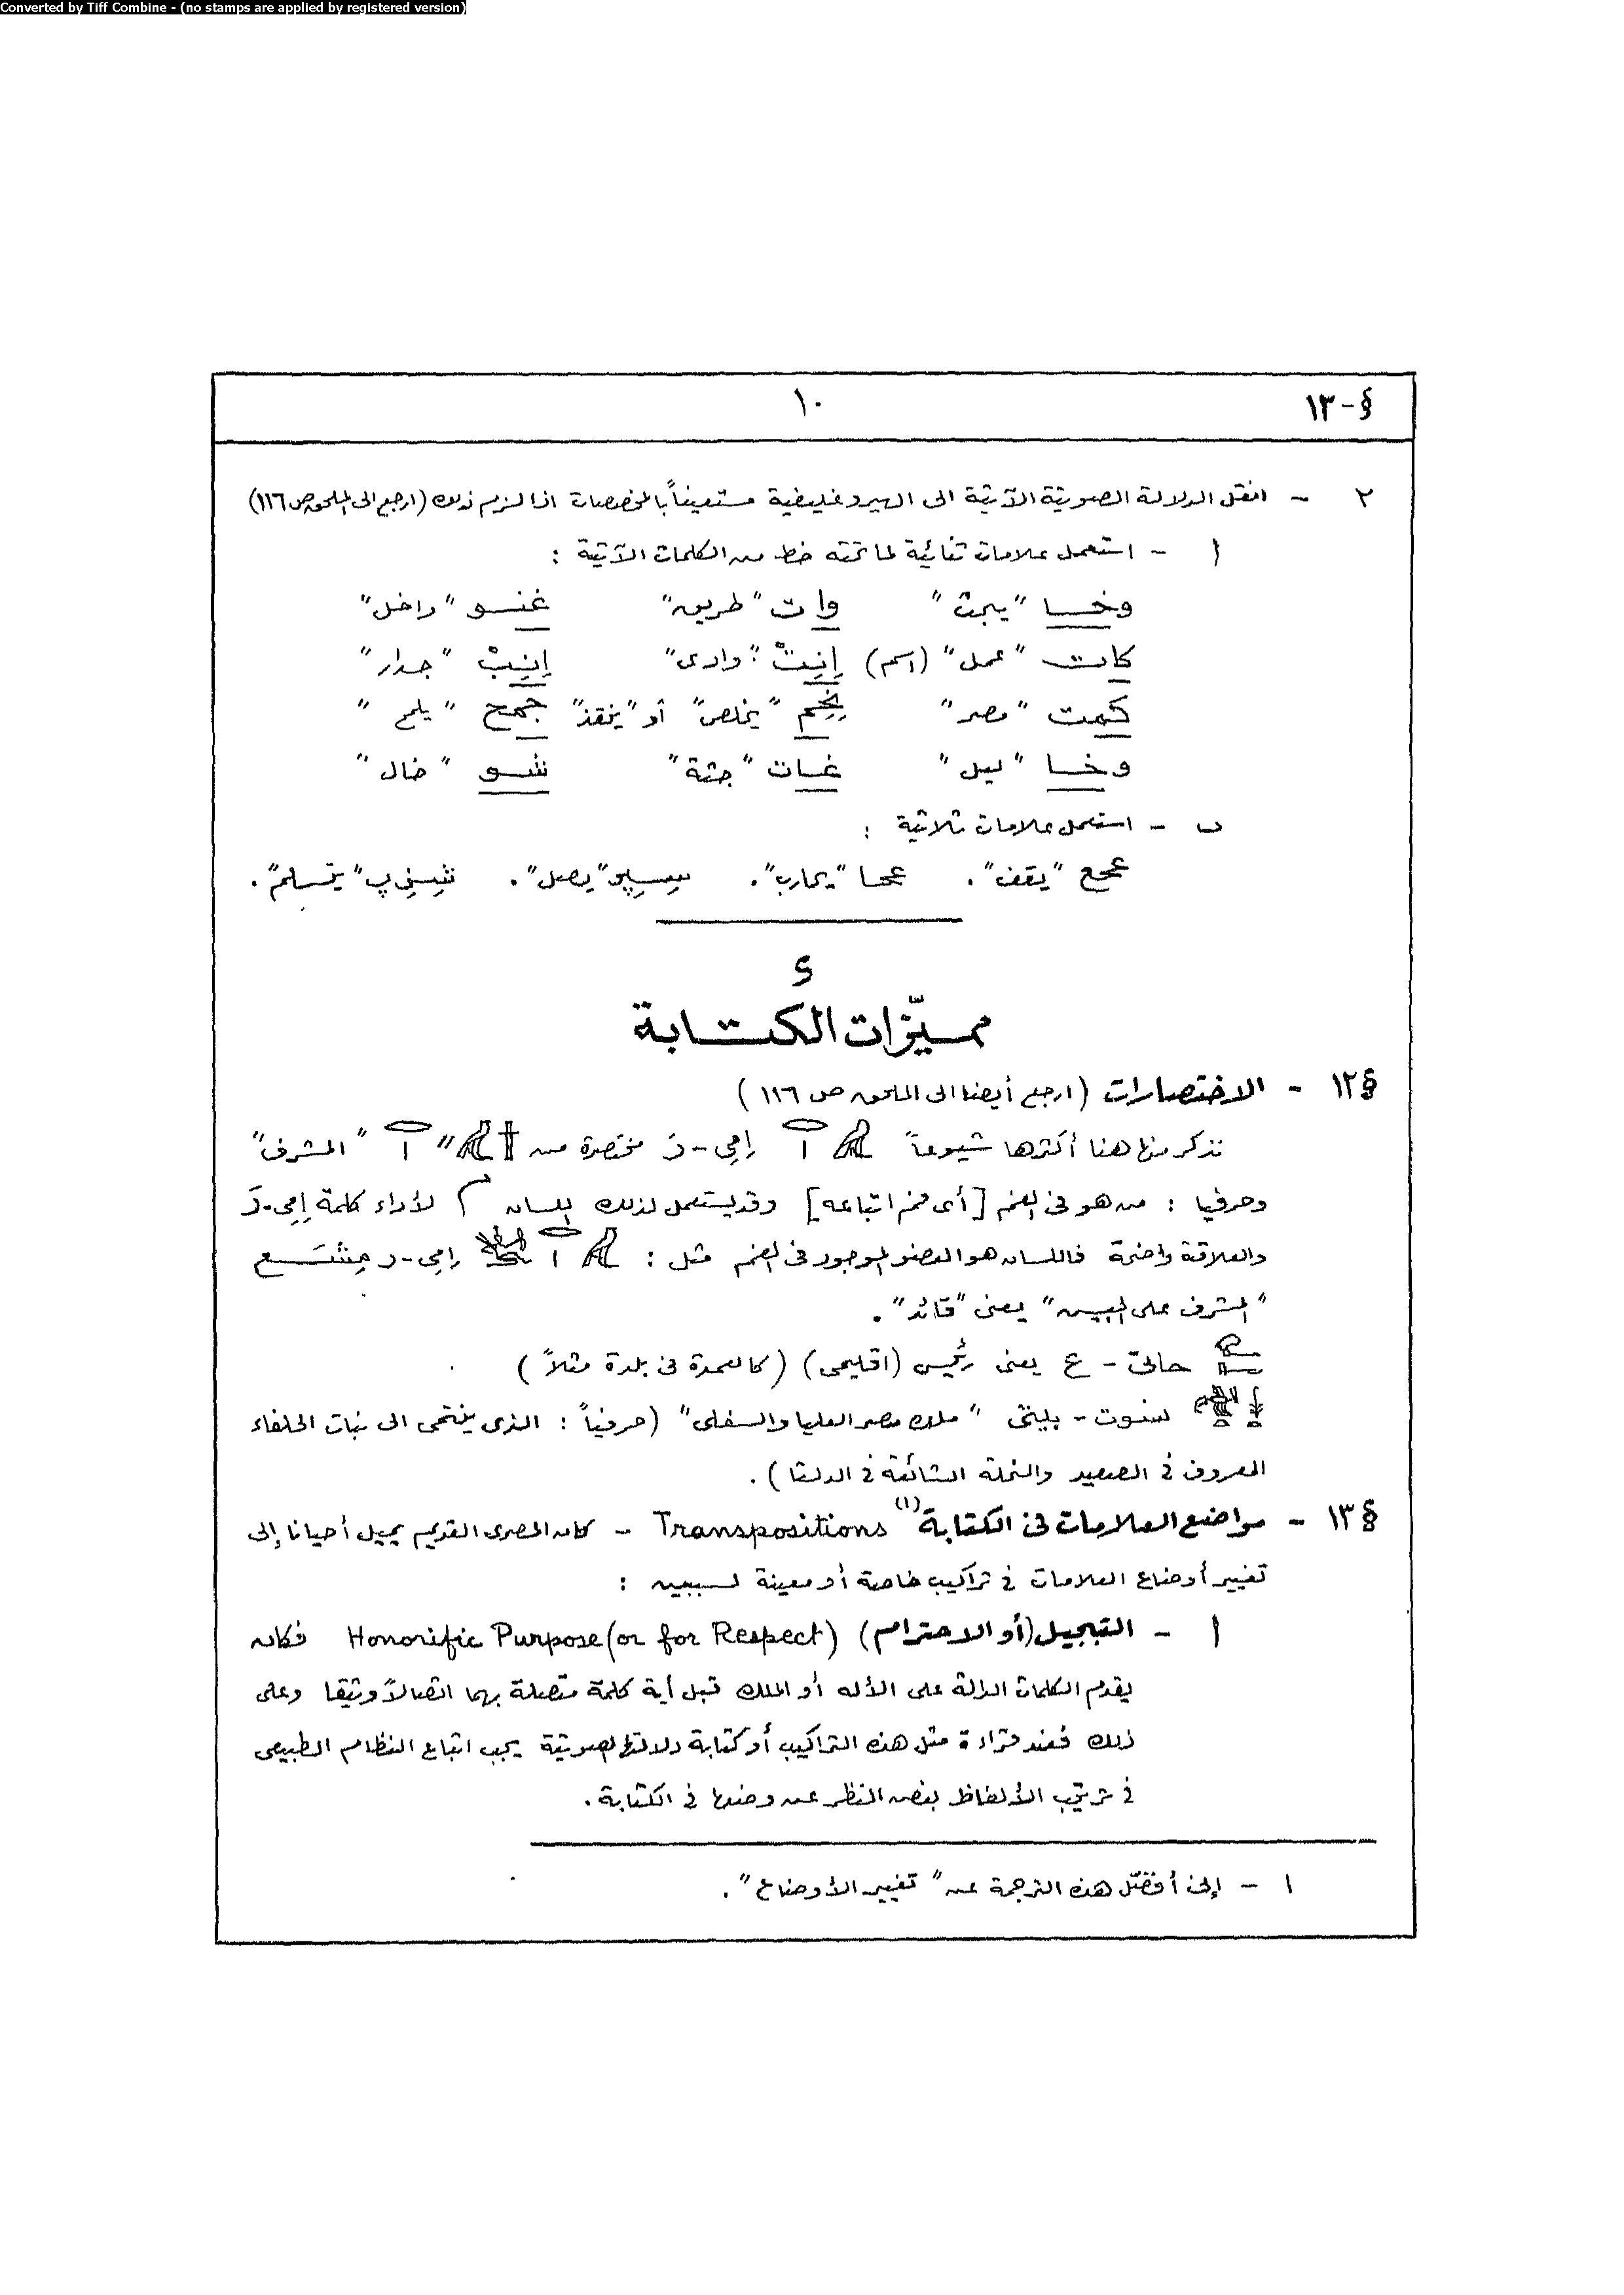 Converted by Tiff Combine - (no stamps are applied by registered version)
§-١٣
١٠
٢ - انقل الدلالة الصوتية الآتية الى الهيروغليفية مستعيناً بالمخصصات اذا لزم ذلك (ارجع الى الملحق ص ١١٦)
أ - استعمل علامات ثنائية لما تحته خط من الكلمات الآتية :
وخـا "يبحث" وات "طريق" غنـو "داخل"
كات "عمل" (اسم) إنِتْ "وادى" إنِبْ "جدار"
كمت "مصر" "يخلص" أو "ينقذ" جمح "يلمح"
وخـا "ليل" غـات "جثة" شـو "خال"
ب - استعمل علامات ثلاثية :
عحع "يقف". عحا "يحارب". "يصل". "يتسلم".
د
مميّزات الكتـابة
§١٢ - الاختصارات (ارجع أيضا الى الملحق ص ١١٦)
نذكر منها هنا أكثرها شيوعاً إمِى-رَ مختصرة من " "المشرف"
وحرفيا : من هو فى الفم [أى فم اتباعه] وقد يستعمل لذلك اللسان لأداء كلمة إمِى-رَ
والعلاقة واضحة فاللسان هو العضو الموجود فى الفم مثل : إمِى-ر مِشَـع
"المشرف على الجيش" يعنى "قائد".
حاتى - ع يعنى رئيس (اقليمى) (كالعمدة فى بلدة مثلاً)
نسوت - بيتى "ملك مصر العليا والسفلى" (حرفياً : الذى ينتمى الى نبات الحلفاء
المعروف فى الصعيد والنحلة الشائعة فى الدلتا).
§١٣ - مواضع العلامات فى الكتابة(١) Transpositions - كان المصرى القديم يميل أحيانا إلى
تغيير أوضاع العلامات فى تراكيب خاصة أو معينة لسببين :
أ - التبجيل (أو الاحترام) Honorific Purpose (or for Respect) فكان
يقدم الكلمات الدالة على الأله أو الملك قبل أية كلمة متصلة بهما اتصالاً وثيقا وعلى
ذلك فعند قراءة مثل هذه التراكيب أو كتابة دلالتها الصوتية يجب اتباع النظام الطبيعى
فى ترتيب الألفاظ بغض النظر عن وضعها فى الكتابة.
١ - إنى أفضّل هذه الترجمة عن "تغيير الأوضاع".